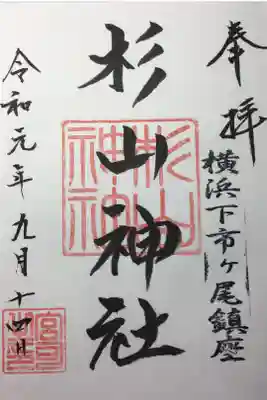 奉拝
横浜下市ヶ尾鎮座
杉山神社
令和元年九月十四日
杉山
神社